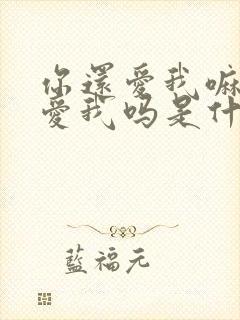 你還愛我嘛
愛我吗是什
藍福元